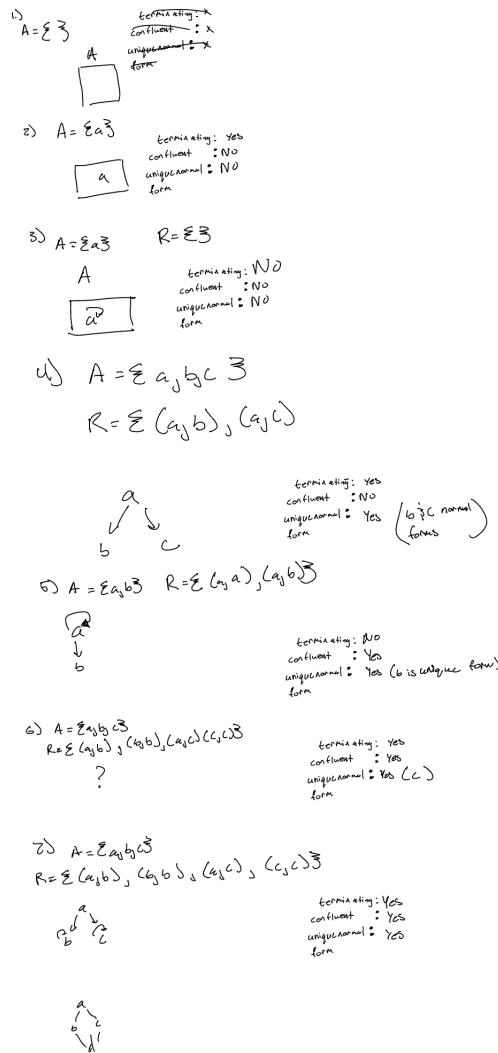 1.)
A = { }
A
terminating: x
confluent : x
unique normal : x
form
2) A = {a}
a
terminating: Yes
confluent : NO
unique normal : NO
form
3) A = {a} R = { }
A
a
terminating: NO
confluent : NO
unique normal : NO
form
4) A = { a, b, c }
R = { (a, b), (a, c)
a
b c
terminating: Yes
confluent : NO
unique normal : Yes (b & c normal
form forms)
5) A = {a, b} R = { (a, a), (a, b) }
a
b
terminating: NO
confluent : Yes
unique normal : Yes (b is unique form)
form
6) A = {a, b, c}
R = { (a, b), (b, b), (a, c) (c, c) }
?
terminating: Yes
confluent : Yes
unique normal : Yes (c)
form
7) A = {a, b, c}
R = { (a, b), (b, b), (a, c), (c, c) }
a
b c
terminating: Yes
confluent : Yes
unique normal : Yes
form
a
b c
d